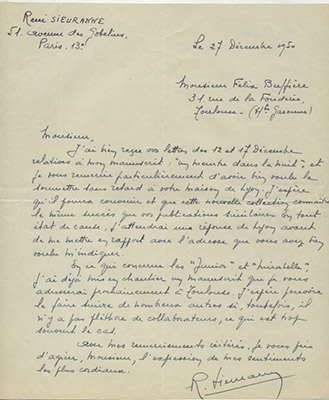 René SIEURANNE
51. avenue des Gobelins,
Paris. 13e
Le 27 Décembre 1950
Monsieur Félix Buffière
31. rue de la Fonderie,
Toulouse. (Hte Garonne)
Monsieur,
J'ai bien reçu vos lettres des 12 et 17 Décembre
relatives à mon manuscrit : "un meurtre dans la nuit", et
je vous remercie particulièrement d'avoir bien voulu le
soumettre sans retard à votre maison de Lyon. J'espère
qu'il pourra convenir et que cette nouvelle collection connaîtra
le même succès que vos publications similaires. En tout
état de cause, j'attendrai une réponse de Lyon avant
de me mettre en rapport avec l'adresse que vous avez bien
voulu m'indiquer.
En ce qui concerne les "Junior" et "Mirabelle",
j'ai déjà mis en chantier un manuscrit que je vous
adresserai prochainement à Toulouse. J'espère pouvoir
le faire suivre de nombreux autres si, toutefois, il
n'y a pas pléthore de collaborateurs, ce qui est trop
souvent le cas.
Avec mes remerciements réitérés, je vous prie
d'agréer, Monsieur, l'expression de mes sentiments
les plus cordiaux.
R. Sieuranne